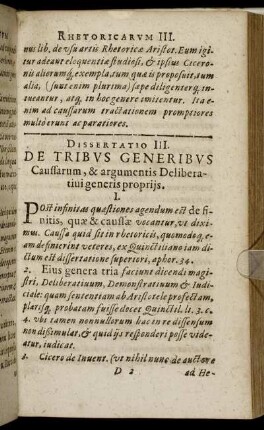 RHETORICARVM III.
nus lib. de vsu artis Rhetoricæ Aristot. Eum igi
tur adeant eloquentiæ studiosi, & ipsius Cicero-
nis aliorumq́; exempla, tum quæ is proposuit, tum
alia, (sunt enim plurima) sæpe diligenterq́; in-
tueantur, atq́; in hoc genere imitentur. Ita e-
nim ad caussarum tractationem promptiores
multò erunt ac paratiores.
DISSERTATIO III.
DE TRIBVS GENERIBVS
Caussarum, & argumentis Delibera-
tiui generis proprijs.
I.
POst infinitas quæstiones agendum est de fi-
nitis, quæ & caussæ vocantur, vt dixi-
mus. Caussa quid sit in rhetoricis, quomodoq́; e-
am definierint veteres, ex Quinctiliano iam di-
ctum est dissertatione superiori, aphor. 34.
2. Eius genera tria faciunt dicendi magi-
stri, Deliberatiuum, Demonstratiuum & Iudi-
ciale: quam sententiam ab Aristotele profectam,
plerisq́; probatam fuisse docet Quinctil. li. 3. c.
4. vbi tamen nonnullorum hac in re dissensum
non dissimulat, & quid ijs responderi posse vide-
atur, iudicat.
3. Cicero de Inuent. (vt nihil nunc de auctore
D 2 ad He-